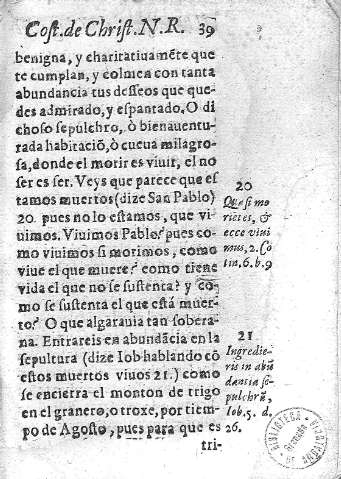 Cost. de Christ. N. R. 39
benigna, y charitatiuamẽte que
te cumplan, y colmen con tanta
abundancia tus desseos que que-
des admirado, y espantado, O di
choso sepulchro, ò bienauentu-
rada habitaciõ, ò cueua milagro-
sa, donde el morir es viuir, el no
ser es ser. Veys que parece que es
tamos muertos (dize San Pablo)
20. pues no lo estamos, que vi-
uimos. Viuimos Pablo? pues co-
mo viuimos si morimos, como
viue el que muere? como tiene
vida el que no se sustenta? y co-
mo se sustenta el que está muer-
to? O que algarauia tan sobera-
na. Entrareis en abundãcia en la
sepultura (dize Iob hablando cõ
estos muertos viuos 21.) como
se encierra el monton de trigo
en el granero, o troxe, por tiem-
po de Agosto, pues para que es
tri-
20
Quasi mo
rietes, &
ecce viui
mus, 2. Co
rin. 6. b. 9
21
Ingredie-
ris in abũ
dãtia se-
pulchrũ,
Iob. 5. d.
26.
BIBLIOTECA